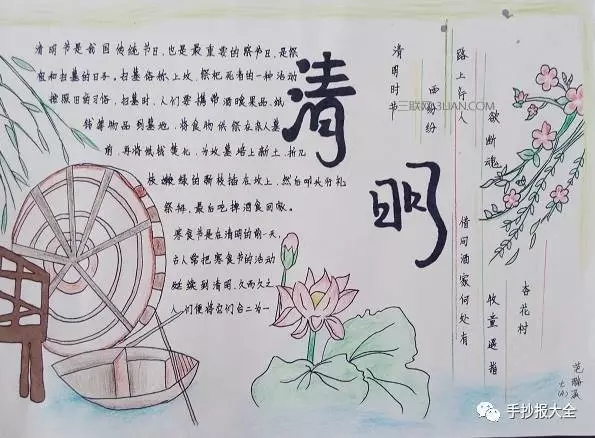 清明节是我国传统节日，也是最重要的祭节日，是祭
祖和扫墓的日子。扫墓俗称上坟，祭祀死者的一种活动
按照旧的习俗，扫墓时，人们要携带酒食果品、纸
钱等物品到墓地，将食物供祭在亲人墓
前，再将纸钱焚化，为坟墓培上新土，折几
枝嫩绿的新枝插在坟上，然后叩头行礼
祭拜，最后吃掉酒食回家。
寒食节是在清明的前一天，
古人常把寒食节的活动
延续到清明，久而久之
人们便将它们合二为一
清明
清明时节
雨纷纷
路上行人
欲断魂
借问酒家何处有
牧童遥指
杏花村
三联网 3LIAN.COM
手抄报大全